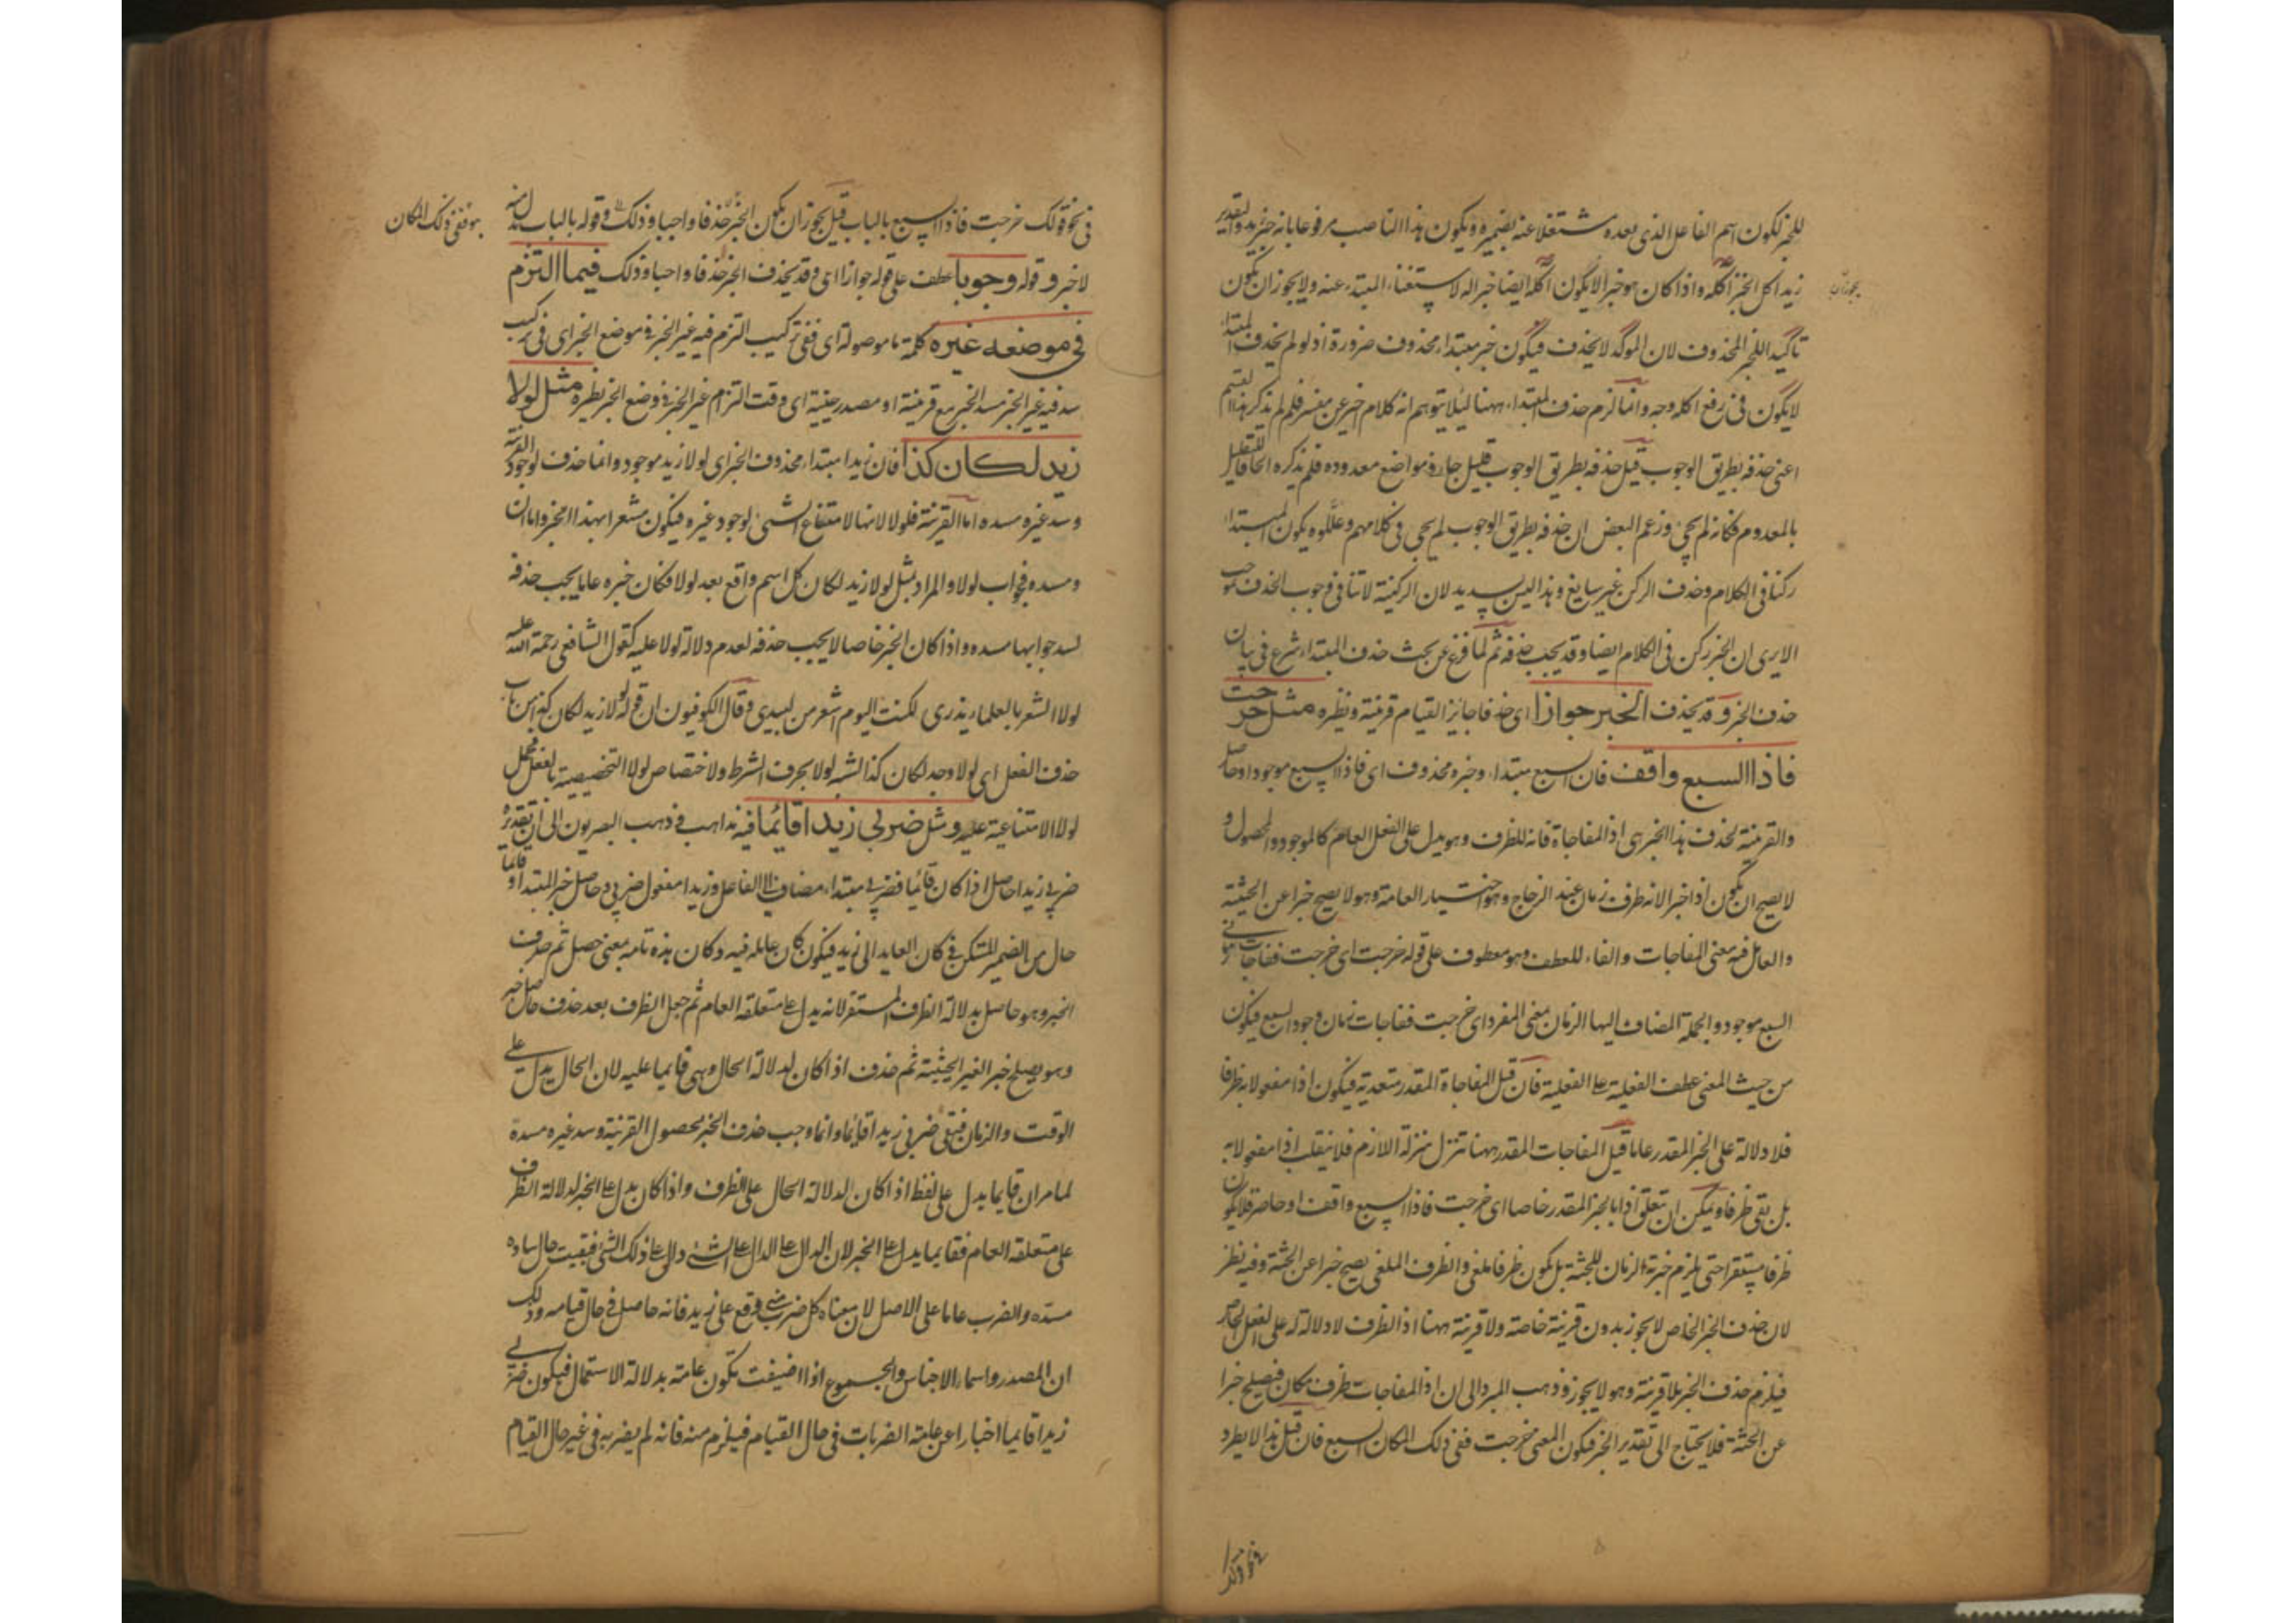 للخبر لكون اسم الفاعل الذى بعده مشتغلا عنه بضميره ويكون هذا الناصب مرفوعا بانه خبر زيد والتقدير
زيد اكل الخبز اكله واذا كان هو خبرا لا يكون اكله ايضا خبرا له لاستغناء المبتداء عنه ولا يجوز ان يكون
يجوز ان
تاكيد اللخبر المحذوف لان الموكد لا يحذف فيكون خبر مبتداء محذوف ضرورة اذ لو لم يحذف المبتداء
لا يكون فى رفع اكله وجه وانما لزم حذف المبتداء ههنا ليلا يتوهم انه كلام خبر عن مفسر فلم لم يذكر هذا القسم
اعنى حذفه بطريق الوجوب قيل حذفه بطريق الوجوب قليل جار فى مواضع معدوده فلم يذكره الحاقا للقليل
بالمعدوم فكانه لم يجئ وزعم البعض ان حذفه بطريق الوجوب لم يجئ فى كلامهم وعللوه بكون المبتداء
ركنا فى الكلام وحذف الركن غير سايغ وهذا ليس بسديد لان الركنية لا تنافى وجوب الحذف
الا يرى ان الخبر ركن فى الكلام ايضا وقد يجب حذفه ثم لما فرغ عن بحث حذف المبتداء شرع فى بيان
حذف الخبر وقد يحذف الخبر جوازا اى حذفا جايزا لقيام قرينة ونظيره مثل خرجت
فاذا السبع واقف فان السبع مبتداء وخبره محذوف اى فاذا السبع موجود او حاصل
والقرينة لحذف هذا الخبر هى اذ المفاجاة فانه للظرف وهو يدل على الفعل العام كالموجود والحصول و
لا يصح ان يكون اذا خبرا لانه ظرف زمان عند الزجاج وهو اختيار العامة وهو لا يصح خبرا عن الجثة
والعامل فيه معنى المفاجات والفاء للعطف وهو معطوف على قوله خرجت اى خرجت ففاجات زمانى
السبع موجود والجملة المضاف اليها الزمان بمعنى المفرد اى خرجت ففاجات زمان وجود السبع فيكون
من حيث المعنى عطف الفعلية على الفعلية فان قيل المفاجاة المقدر متعدية فيكون اذا مفعولا به لا ظرفا
فلا دلالة على الخبر المقدر عاما قيل المفاجات المقدر ههنا تنزل منزلة اللازم فلا ينقلب اذا مفعولا به
بل بقى ظرفا ويمكن ان تعلق اذا بالخبر المقدر خاصا اى خرجت فاذا السبع واقف او حاضر فلا يكون
ظرفا مستقرا حتى يلزم خبرية الزمان للجثة بل يكون ظرفا ملغى والظرف الملغى يصح خبرا عن الجثة وفيه نظر
لان حذف الخبر الخاص لا يجوز بدون قرينة خاصة ولا قرينة ههنا اذ الظرف لا دلالة له على الفعل الخاص
فيلزم حذف الخبر بلا قرينة وهو لا يجوز وذهب المبرد الى ان اذ المفاجات ظرف مكان فيصلح خبرا
عن الجثة فلا يحتاج الى تقدير الخبر فيكون المعنى خرجت ففى ذلك المكان السبع فان قيل هذا لا يطرد
فى نحو قولك
فى نحو قولك خرجت فاذا السبع بالباب قيل يجوز ان يكون الخبر حذفا واجبا وذلك وقوله بالباب بدل منه
هو ففى ذلك المكان
لا خبر وقوله وجوبا عطف على قوله جوازا اى وقد يحذف الخبر حذفا واجبا وذلك فيما التزم
فى موضعه غيره كلمة ما موصولة اى ففى تركيب التزم فيه غير الخبر فى موضع الخبر اى فى تركيب
سد فيه غير الخبر مسد الخبر مع قرينة او مصدر حينية اى وقت التزام غير الخبر فى وضع الخبر نظيره مثل لولا
زيد لكان كذا فان زيدا مبتداء محذوف الخبر اى لولا زيد موجود وانما حذف لوجود القرينة
وسد غيره مسده اما القرينة فلولا لانها لامتناع الشئ لوجود غيره فيكون مشعرا بهذا الخبر واما ان
ومسده فجواب لولا والمراد بمثل لولا زيد لكان كل اسم واقع بعد لولا فكان خبره عاما يجب حذفه
لسد جوابها مسده واذا كان الخبر خاصا لا يجب حذفه لعدم دلالة لولا عليه كقول الشافعى رحمة الله عليه
لولا الشعر بالعلماء يذرى لكنت اليوم اشعر من لبيدى وقال الكوفيون ان قوله لولا زيد لكان كذا من باب
حذف الفعل اى لولا وجد لكان كذا لشبه لولا بحرف الشرط ولاختصاص لولا التخصيصية بالفعل محمل
لولا الامتناعية عليه ومثل ضربى زيدا قائما فيه مذاهب فذهب البصريون الى ان تقديره
ضربى زيدا حاصل اذا كان قائما فضربى مبتداء مضاف الى الفاعل وزيدا مفعول ضربى وحاصل خبر المبتدا وقائما
حال من الضمير المستكن فى كان العايد الى زيد فيكون كان عامله فيه وكان هذه تامه بمعنى حصل ثم حذف
الخبر وهو حاصل بدلالة الظرف المستقر لانه يدل على متعلقه العام ثم جعل الظرف بعد حذف حاصل خبر
وهو يصلح خبر الغير الجثية ثم حذف اذا كان لدلالة الحال وهى قايما عليه لان الحال يدل على
الوقت والزمان فبقى ضربى زيدا قايما وانما وجب حذف الخبر لحصول القرينة وسد غيره مسده
لما مر ان قايما يدل على لفظ اذا كان لدلالة الحال على الظرف واذا كان يدل على الخبر لدلالة الظرف
على متعلقه العام فقايما يدل على الخبر لان الدال على الدال على الشئ دال على ذلك الشئ فبقيت حال ساده
مسده والضرب عاما على الاصل لان معناه كل ضرب منى وقع على زيد فانه حاصل فى حال قيامه وذلك
ان المصدر واسماء الاجناس والجموع اذا اضيفت تكون عامة بدلالة الاستعمال فيكون ضربى
زيدا قايما اخبارا عن عامة الضربات فى حال القيام فيلزم منه فانه لم يضربه فى غير حال القيام